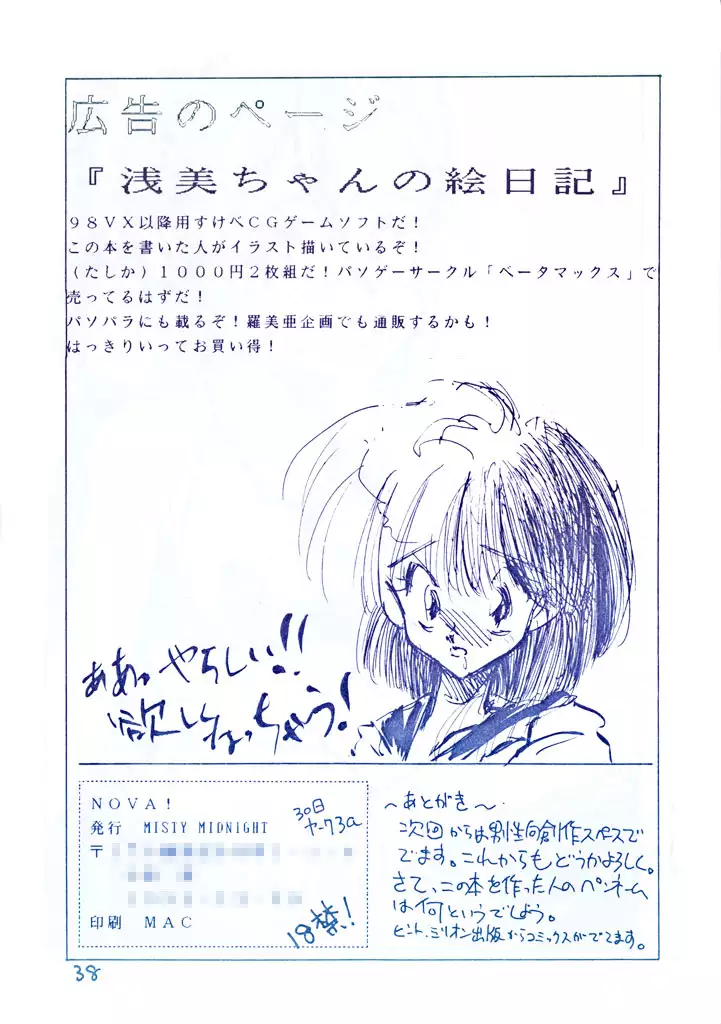 広告のページ
『浅美ちゃんの絵日記』
98VX以降用すけべCGゲームソフトだ!
この本を書いた人がイラスト描いているぞ!
(たしか)1000円2枚組だ!パソゲーサークル「ベータマックス」で
売ってるはずだ!
パソパラにも載るぞ!羅美亜企画でも通販するかも!
はっきりいってお買い得!
ああっやらしい!!
欲しねっちゃう!
NOVA!
30日
ヤ-73a
発行 MISTY MIDNIGHT
〒
印刷 MAC
18禁!
〜あとがき〜
次回からは男性向創作スペースで
でます。これからもどうかよろしく。
さて、この本を作った人のペンネーム
は何というでしょう。
ヒント、ミリオン出版からコミックスがでてます。
38